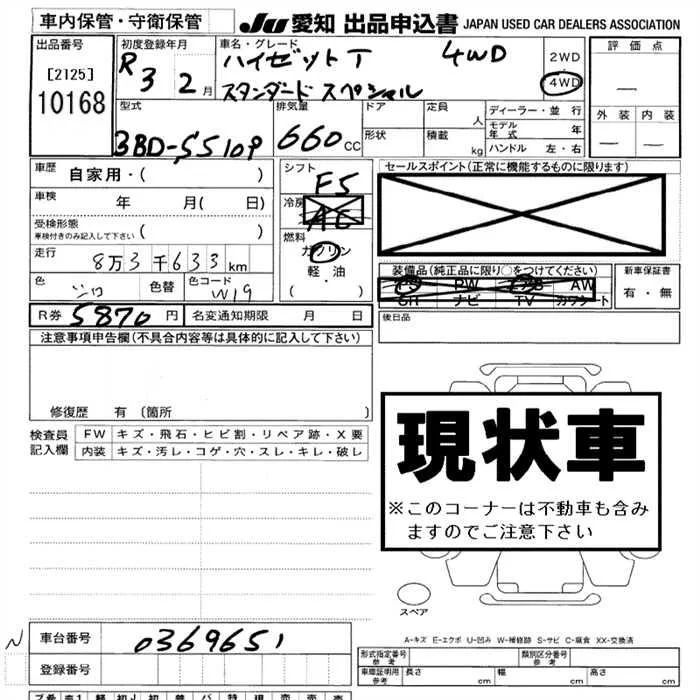 車内保管・守衛保管
JU 愛知 出品申込書 JAPAN USED CAR DEALERS ASSOCIATION
出品番号
[2125]
10168
初度登録年月
R3 2月
車名・グレード
ハイゼットT 4WD
スタンダード スペシャル
2WD
4WD
評価点
—
外装 内装
— —
型式
3BD-S510P
排気量
660 CC
ドア
形状
定員 人
積載 kg
ディーラー・並行
モデル年式 年
ハンドル 左・右
車歴
自家用・( )
車検 年 月( 日)
受検形態
車検付きのみ記入して下さい ( )
走行
8万3千633km
色
シロ
色替
色コード
W19
シフト
F5
冷房
AC
燃料
ガソリン
軽・油
( ・ )
セールスポイント(正常に機能するものに限ります)
装備品(純品品に限り○をつけてください)
PS PW AW
SR ナビ TV カワシート
新車保証書
有・無
R券 5870円
名変通知期限 月 日
後日品
注意事項申告欄(不具合内容等は具体的に記入して下さい)
修復歴 有 (箇所 )
検査員記入欄
FW キズ・飛石・ヒビ割・リペア跡・X要
内装 キズ・汚レ・コゲ・穴・スレ・キレ・破レ
現状車
※このコーナーは不動車も含み
ますのでご注意下さい
スペア
A-キズ E-エクボ U-凹み W-補修跡 S-サビ C-腐食 XX-交換済
N
車台番号 0369651
登録番号
形式指定番号 参考
類別区分番号 参考
車庫証明用 参考 長さ cm 幅 cm 高さ cm